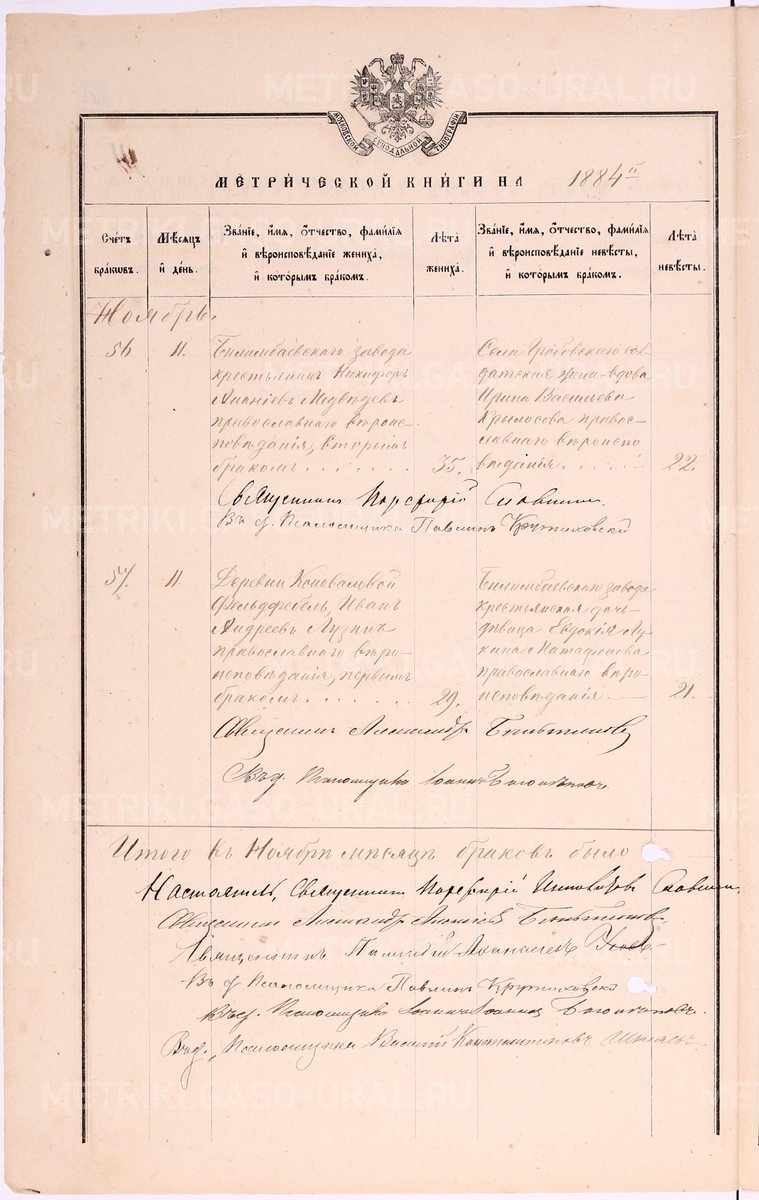 МОСКОВСКОЙ СѴНОДАЛЬНОЙ ТИПОГРАФІИ
МЕТРИ́ЧЕСКОЙ КНИ́ГИ НА 1884
Сче́тъ бра́кωвъ.
Мѣ́сяцъ и҆ де́нь.
Зва́нїе, и҆́мя, ѻ҆́тчество, фами́лїя и҆ вѣроисповѣ́данїе жениха̀, и҆ кото́рымъ бра́комъ.
Лѣ́та жениха̀.
Зва́нїе, и҆́мя, ѻ҆́тчество, фами́лїя и҆ вѣроисповѣ́данїе невѣ́сты, и҆ кото́рымъ бра́комъ.
Лѣ́та невѣ́сты.
Ноябрь.
56
11.
Билимбаевскаго завода
крестьянинъ Никифоръ
Ананіевъ Медвѣдевъ
православнаго вѣроис-
повѣданія, вторымъ
бракомъ . . . . . .
35.
Села Гробовскаго сол-
датская жена-вдова
Ирина Васильева
Крылосова правос-
славнаго вѣроиспо
вѣданія . . . . .
22.
Священникъ Порфирій Славнинъ.
Въ д. Псаломщика Павлинъ Крутиховскій
57.
11.
Деревни Коноваловой
Фельдфебель, Иванъ
Андреевъ Лузинъ
православнаго вѣро-
исповѣданія, первымъ
бракомъ. . . . . . .
29.
Билимбаевскаго завода
крестьянская дочь-
дѣвица Евдокія Лу-
кина Матафонова
православнаго вѣро-
исповѣданія —
21.
Священникъ Александръ
Въ д. Псаломщика Іоаннъ
Итого въ Ноябрѣ мѣсяцѣ браковъ было
Настоятель, Священникъ Порфирій Славнинъ.
Священникъ Александръ
Священникъ Аѳанасіевъ
Въ д. Псаломщика Павлинъ Крутиховскій
Въ д. Псаломщика Іоаннъ
Въ д. Псаломщика Василій Константиновъ
METRIKI.GASO-URAL.RU